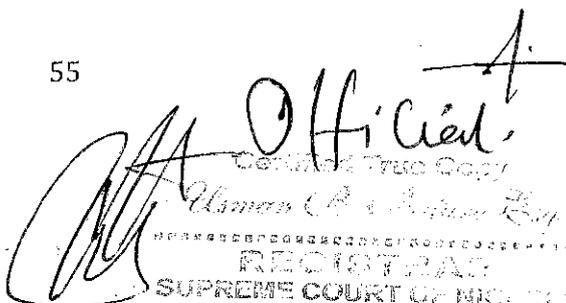 55
Official.
Certified True Copy
Usman
REGISTRAR
SUPREME COURT OF NIG